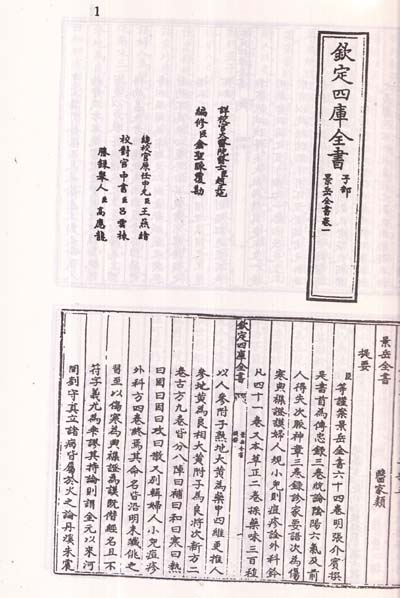 1
欽定四庫全書
子部
景岳全書卷一
詳校官太醫院醫士臣
編修臣倉聖脈覆勘
總校官原任中允臣王燕緒
校對官中書臣呂雲棟
謄錄舉人臣高應龍
景岳全書 醫家類
提要
臣等謹案景岳全書六十四卷明張介賓撰
是書首為傳忠錄三卷統論陰陽六氣及前
人得失次脈神章三卷錄診家要語次為傷
寒典襍證謨婦人規小兒則痘疹詮外科鈐
凡四十一卷又本草正二卷採藥味三百種
欽定四庫全書
景岳全書
提要
以人參附子熟地大黃為藥中四維更推人
參地黃為良相大黃附子為良將次新方二
卷古方九卷皆分八陣曰補曰和曰寒曰熱
曰固曰因曰攻曰散又別輯婦人小兒痘疹
外科方四卷終焉其命名皆沿明末纖佻之
習至以傷寒為典襍證為謨既僭經名且不
符字義尤為乖謬其持論則謂金元以來河
間劉守真立諸病皆屬於火之論丹溪朱震